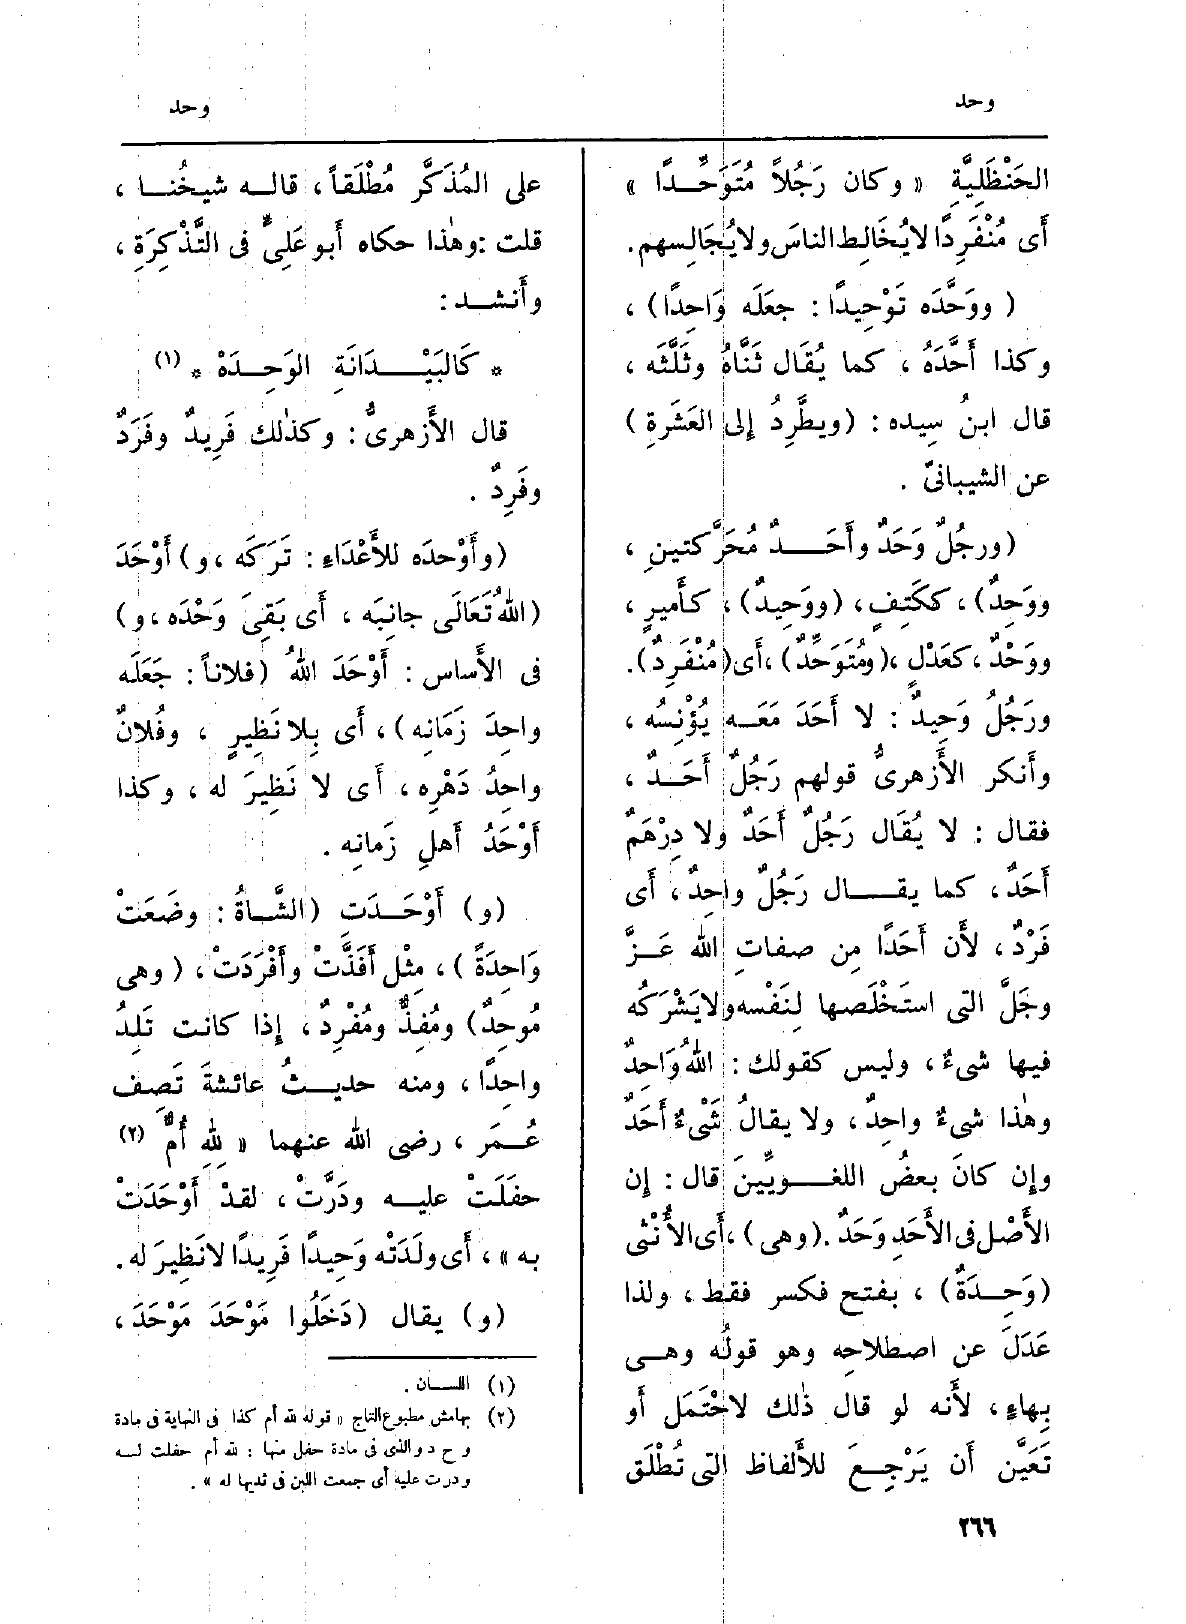 وحد
وحد
الحَنْظَلِيَّةِ « وكان رَجُلاً مُتَوَحِّدًا »
أَى مُنْفَرِدًا لا يُخَالِط الناسَ ولا يُجَالِسهم.
( ووَحَّدَه تَوْحِيدًا : جعَلَه وَاحِدًا ) ،
وكذا أَحَّدَهُ ، كما يُقَال ثَنَّاهُ وثَلَّثَه ،
قال ابنُ سِيده : (ويطَّرِدُ إِلى العَشَرةِ )
عن الشيبانىّ .
(ورجُلٌ وَحَدٌ وأَحَدٌ مُحَرَّكتينِ ،
ووَحِدٌ) ، ككَتِفٍ ، (ووَحِيدٌ) ، كأَميرٍ ،
ووَحْدٌ ، كعَدْلٍ ، (ومُتَوَحِّدٌ) ، أَى (مُنْفَرِدٌ).
ورَجُلٌ وَحِيدٌ : لا أَحَدَ مَعَه يُؤْنِسُه ،
وأَنكر الأَزهرىُّ قولهم رَجُلٌ أَحَدٌ ،
فقال : لا يُقَال رَجُلٌ أَحَدٌ ولا دِرْهَمٌ
أَحَدٌ ، كما يقال رَجُلٌ واحِدٌ ، أَى
فَرْدٌ ، لأَن أَحَدًا مِن صفاتِ الله عَزَّ
وجَلَّ التى استَخْلَصها لِنَفْسه ولا يَشْرَكُه
فيها شىءٌ ، وليس كقولك : اللهُ وَاحِدٌ
وهٰذا شىءٌ واحِدٌ ، ولا يقالُ شَىْءٌ أَحَدٌ
وإِن كانَ بعضُ اللغويِّينَ قال : إِن
الأَصْل فى الأَحَدِ وَحَدٌ . (وهى) ، أَى الأُنْثى
(وَحِدَةٌ) ، بفتح فكسر فقط ، ولذا
عَدَلَ عن اصطلاحِه وهو قولُه وهى
بِهاءٍ ، لأَنه لو قال ذٰلك لاحْتَمَل أَو
تَعَيَّن أَن يَرْجِعَ للأَلفاظ التى تُطْلَق
على المُذَكَّر مُطْلَقاً ، قاله شيخُنا ،
قلت : وهٰذا حكاه أَبو عَلىٍّ فى التَّذْكِرَةِ ،
وأَنشد :
* كَالبَيْدَانَةِ الوَحِدَهْ * (١)
قال الأَزهرىُّ : وكذٰلك فَرِيدٌ وفَرَدٌ
وفَرِدٌ .
(وأَوْحدَه للأَعْدَاءِ : تَرَكَه ، و) أَوْحَدَ
(اللهُ تَعَالَى جانِبَه ، أَى بَقِىَ وَحْدَه ، و)
فى الأَساس : أَوْحَدَ اللهُ (فلاناً : جَعَلَه
واحِدَ زَمَانِه) ، أَى بِلا نَظِيرٍ ، وفُلانٌ
واحِدُ دَهْرِه ، أَى لا نَظِيرَ له ، وكذا
أَوْحَدُ أَهلِ زَمانِه .
(و) أَوْحَدَت (الشَّاةُ : وضَعَتْ
وَاحِدَةً) ، مِثْل أَفَذَّتْ وأَفْرَدَتْ ، (وهى
مُوحِدٌ) ومُفِذٌّ ومُفْرِدٌ ، إِذا كانت تَلِدُ
واحِدًا ، ومنه حديثُ عائشةَ تَصِف
عُمَر ، رضى الله عنهما « لِلهِ أُمٌّ (٢)
حفَلَتْ عليه ودَرَّتْ ، لقدْ أَوْحَدَتْ
به » ، أَى ولَدَتْه وَحِيدًا فَرِيدًا لا نَظِيرَ له.
(و) يقال (دَخَلُوا مَوْحَدَ مَوْحَدَ ،
(١) اللسان .
(٢) بهامش مطبوع التاج « قوله لله أم كذا فى النهاية فى مادة
و ح د والذى فى مادة حفل منها : لله أم حفلت له
ودرت عليه أى جمعت اللبن فى ثديها له » .
٢٦٦